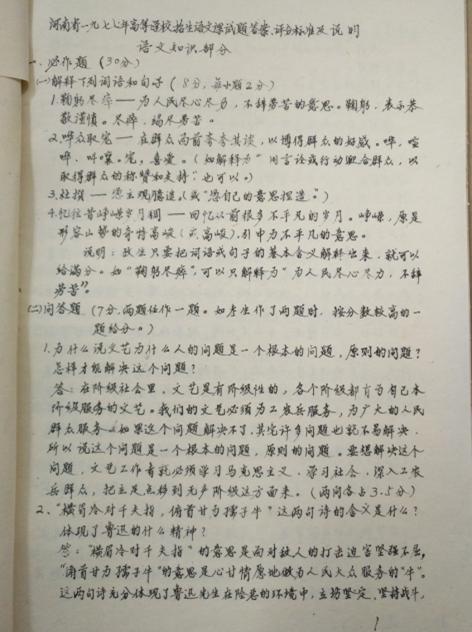 河南省一九七七年高等学校招生语文试题答案、评分标准及说明
语文知识部分
一、必作题（30分）
(一)解释下列词语和句子（8分,每小题2分）
1.鞠躬尽瘁——为人民尽心尽力，不辞劳苦的意思。鞠躬，表示恭
敬谨慎。尽瘁，竭尽劳苦。
2.哗众取宠——在群众面前夸夸其谈，以博得群众的好感。哗，喧
哗，叫嚷。宠，喜爱。（如解释为“用言论或行动迎合群众，以
取得群众的称赞和支持”也可以。）
3.杜撰——凭主观臆造。（或“凭自己的意思捏造”。）
4.忆往昔峥嵘岁月稠——回忆以前很多不平凡的岁月。峥嵘，原是
形容山势的奇特高峻（或高峻），引申为不平凡的意思。
说明：考生只要把词语或句子的基本含义解释出来，就可以
给满分。如“鞠躬尽瘁”，可以只解释为“为人民尽心尽力，不辞
劳苦”。
(二)问答题（7分，两题任作一题。如考生作了两题时，按分数较高的一
题给分。）
1.为什么说文艺为什么人的问题是一个根本的问题，原则的问题？
怎样才能解决这个问题？
答：在阶级社会里，文艺是有阶级性的，各个阶级都有为自己本
阶级服务的文艺。我们的文艺必须为工农兵服务，为广大的人民
群众服务。如果这个问题解决不了，其它许多问题也就不易解决，
所以说这个问题是一个根本的问题，原则的问题。要想解决这个
问题，文艺工作者就必须学习马克思主义，学习社会，深入工农
兵群众，把立足点移到无产阶级这方面来。（两问各占3.5分）
2、“横眉冷对千夫指，俯首甘为孺子牛”这两句诗的含义是什么？
体现了鲁迅的什么精神？
答：“横眉冷对千夫指”的意思是面对敌人的打击迫害坚强不屈，
“俯首甘为孺子牛”的意思是心甘情愿地做为人民大众服务的“牛”。
这两句诗充分体现了鲁迅先生在险恶的环境中，立场坚定、坚持战斗，
1